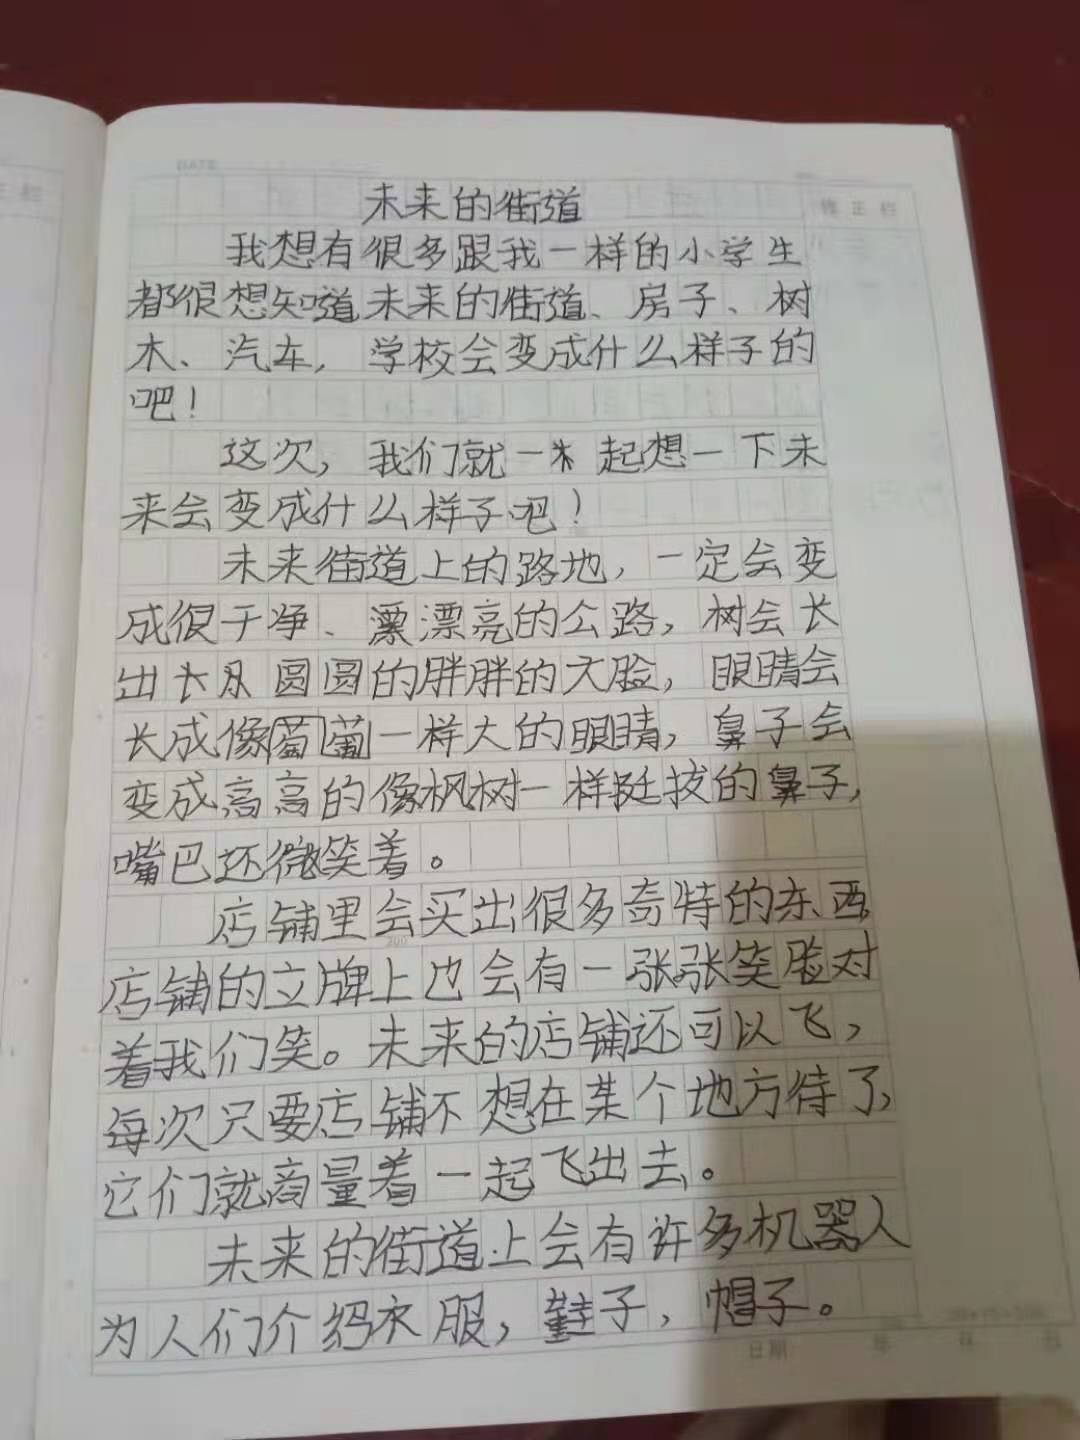 DATE
未来的街道
我想有很多跟我一样的小学生
都很想知道未来的街道、房子、树
木、汽车，学校会变成什么样子的
吧！
这次，我们就一 起想一下未
来会变成什么样子吧！
未来街道上的路地，一定会变
成很干净、漂漂亮的公路，树会长
出长 圆圆的胖胖的大脸，眼睛会
长成像葡萄一样大的眼睛，鼻子会
变成高高的像枫树一样挺拔的鼻子，
嘴巴还微笑着。
店铺里会买出很多奇特的东西
店铺的立牌上也会有一张张笑脸对
着我们笑。未来的店铺还可以飞，
每次只要店铺不想在某个地方待了，
它们就商量着一起飞出去。
未来的街道上会有许多机器人
为人们介绍衣服，鞋子，帽子。
修正栏
正栏
200
日期 年 月 日